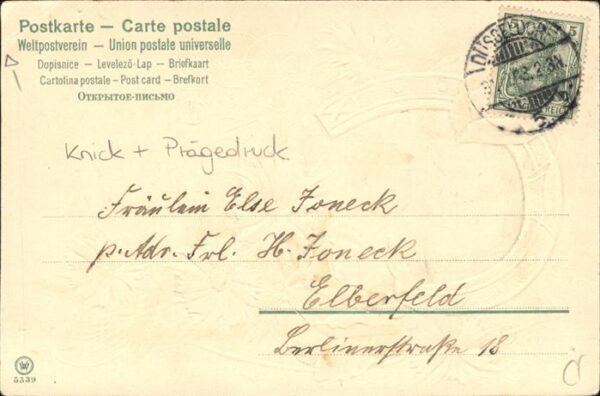 Postkarte – Carte postale
Weltpostverein – Union postale universelle
Dopisnice – Levelező-Lap – Briefkaart
Cartolina postale – Post card – Brefkort
Открытое-письмо
DÜSSELDORF
5
REICH
Knick + Prägedruck
Fräulein Else Joneck
p. Adr. Frl. H. Joneck
Elberfeld
Berlinerstraße 18
5339